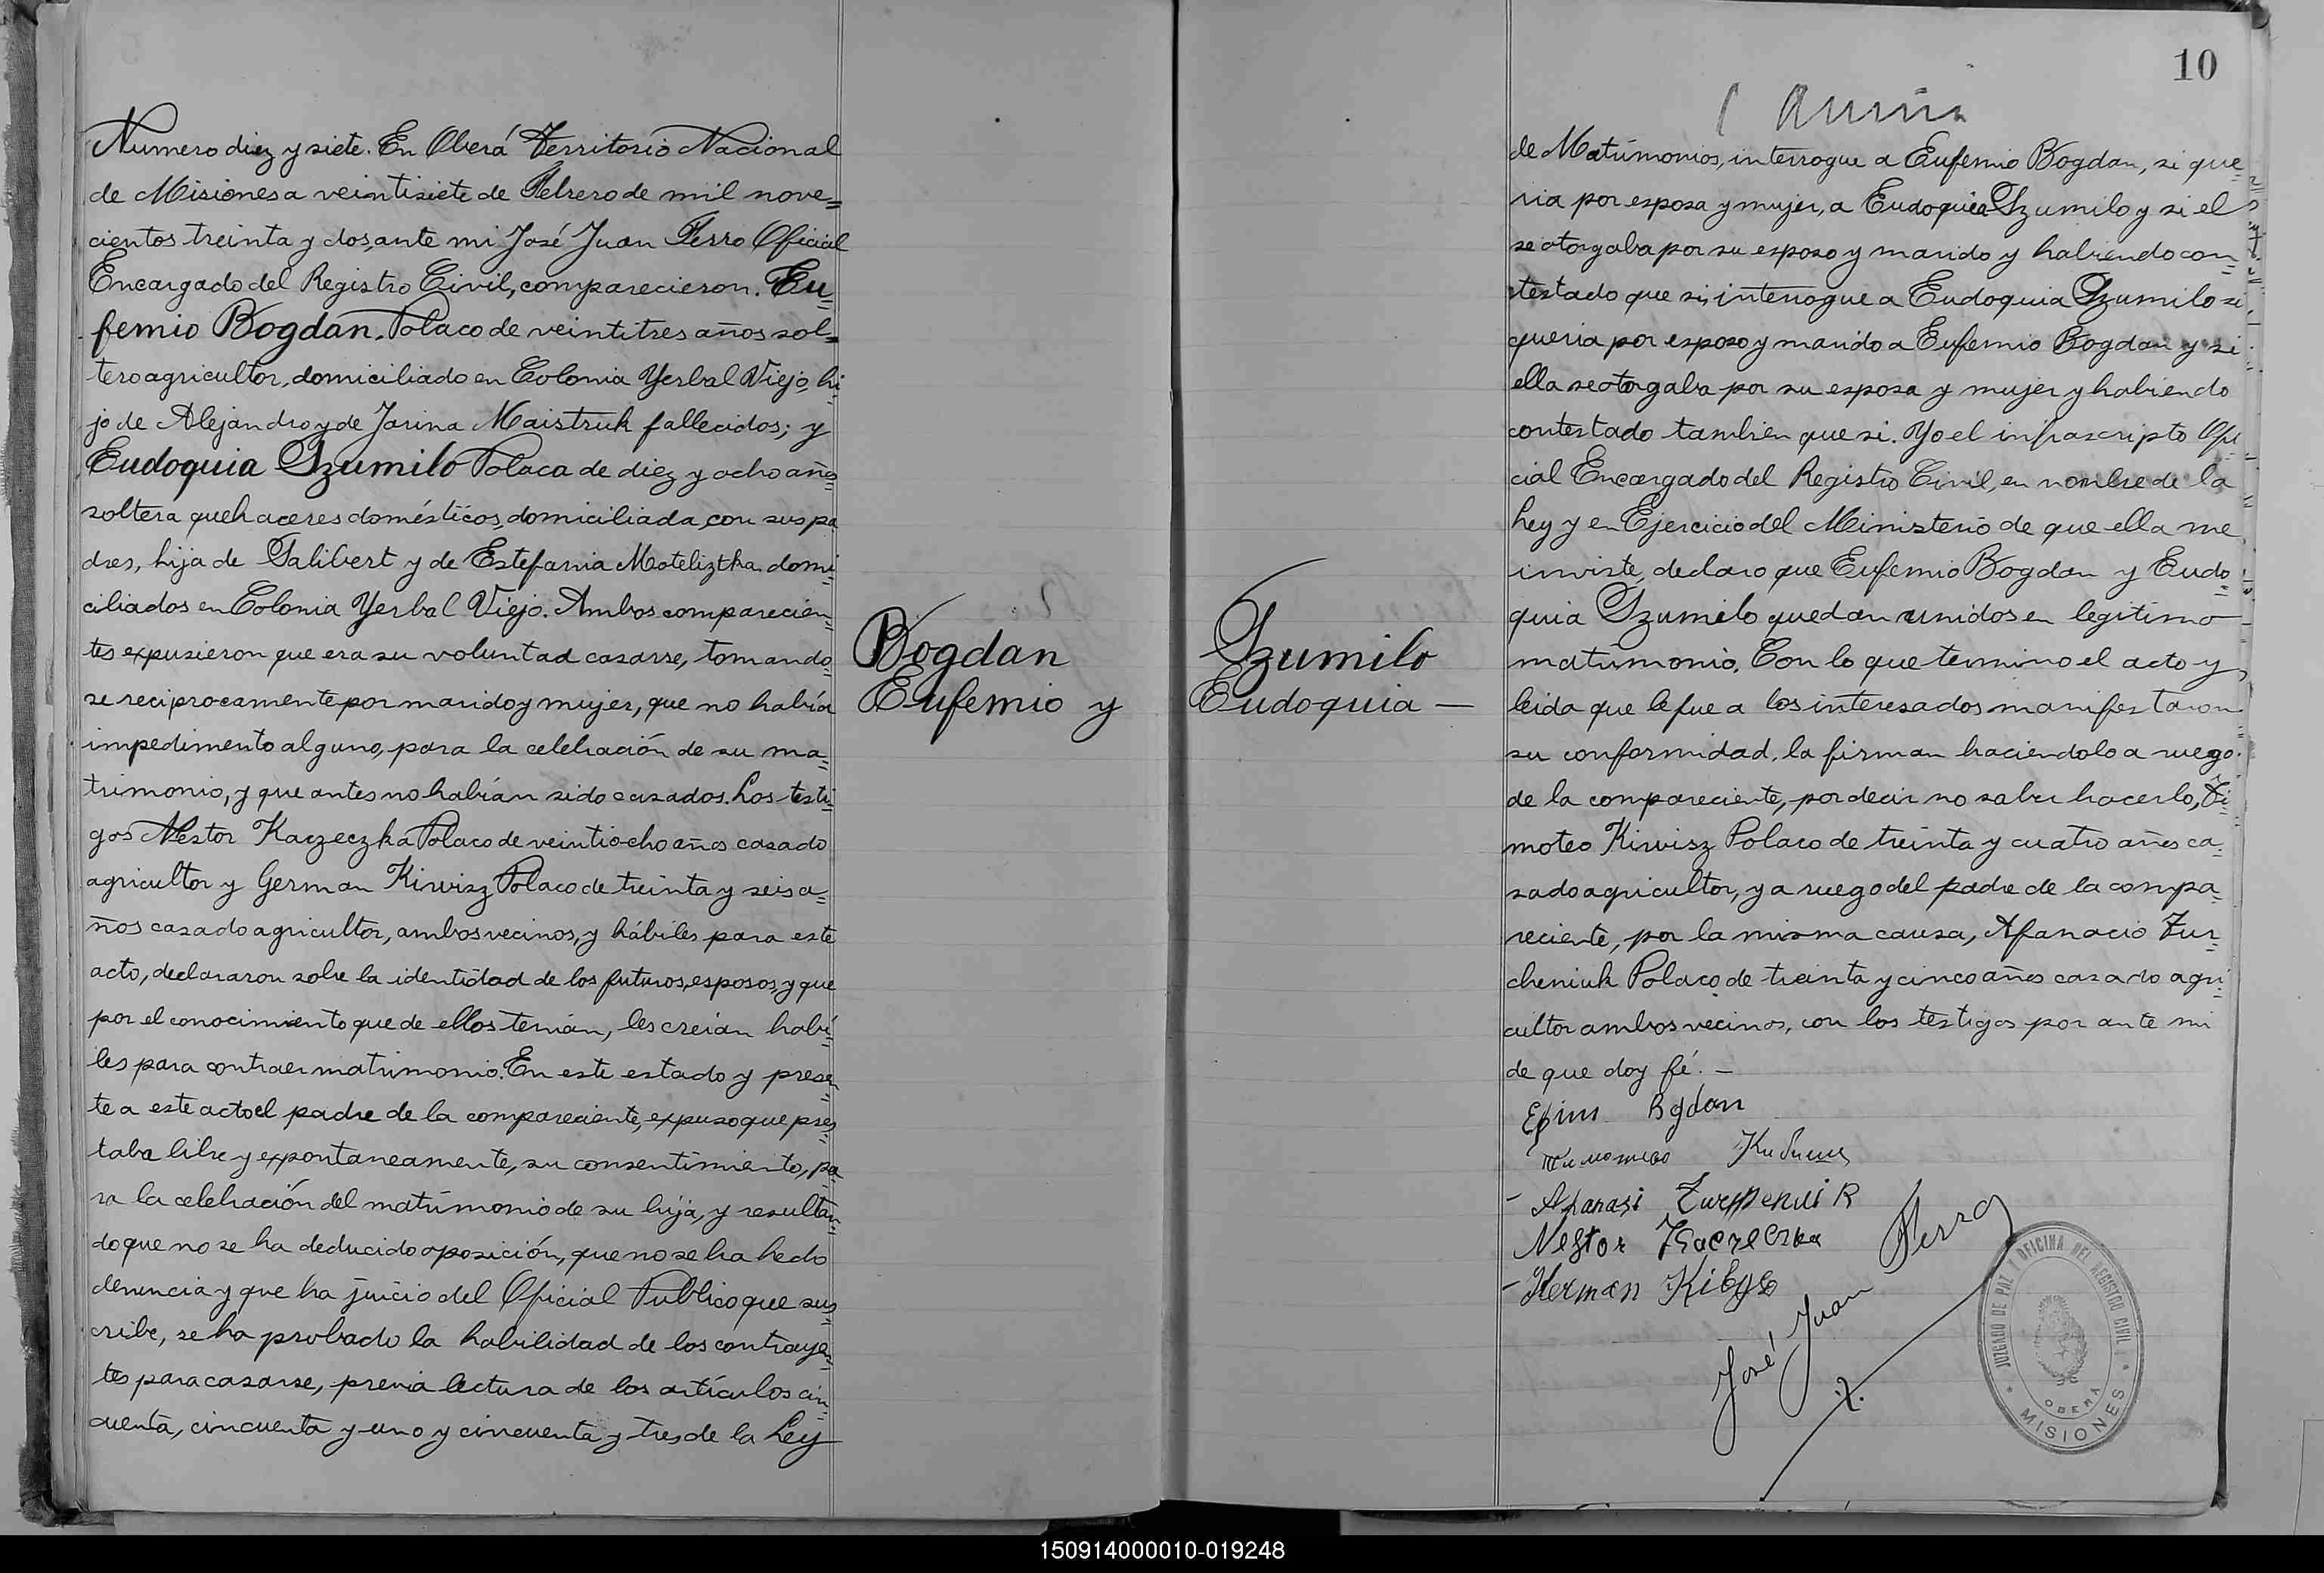 Numero diez y siete. En Oberá Territorio Nacional
de Misiones a veintisiete de Febrero de mil nove=
cientos treinta y dos, ante mi José Juan Ferro Oficial
Encargado del Registro Civil, comparecieron. Eu=
femio Bogdan. Polaco de veintitres años sol=
tero agricultor, domiciliado en Colonia Yerbal Viejo, hi=
jo de Alejandro y de Jarina Maistruk fallecidos; y
Eudoquia Szumilo Polaca de diez y ocho años
soltera quehaceres domésticos, domiciliada con sus pa
dres, hija de Salibert y de Estefania Moteliztka domi=
ciliados en Colonia Yerbal Viejo. Ambos comparecien=
tes expusieron que era su voluntad casarse, tomando
se reciprocamente por marido y mujer, que no habia
impedimento alguno, para la celebración de su ma=
trimonio, y que antes no habían sido casados. Los testi=
gos Nestor Kaczeczka Polaco de veintiocho años casado
agricultor y German Kirvisz Polaco de treinta y seis a=
ños casado agricultor, ambos vecinos, y hábiles para este
acto, declararon sobre la identidad de los futuros, esposos, y que
por el conocimiento que de ellos tenian, les creian habi=
les para contraer matrimonio. En este estado y presen=
te a este acto el padre de la compareciente, expuso que pres=
taba libre y expontaneamente, su consentimiento, pa
ra la celebración del matrimonio de su hija, y resultan=
do que no se ha deducido oposición, que no se ha hecho
denuncia y que ha juicio del Oficial Publico que sus=
cribe, se ha probado la habilidad de los contrayen=
tes para casarse, previa lectura de los artículos cin=
cuenta, cincuenta y uno y cincuenta y tres de la Ley
Bogdan
Eufemio y
Szumilo
Eudoquia —
10
de Matrimonios, interrogue a Eufemio Bogdan, si que=
ria por esposa y mujer, a Eudoquia Szumilo y si el
se otorgaba por su esposo y marido y habiendo con=
testado que si, interrogue a Eudoquia Szumilo si
queria por esposo y marido a Eufemio Bogdan y si
ella se otorgaba por su esposa y mujer y habiendo
contestado tambien que si. Yo el infrascripto Ofi
cial Encargado del Registro Civil, en nombre de la
Ley y en Ejercicio del Ministerio de que ella me
inviste, declaro que Eufemio Bogdan y Eudo=
quia Szumilo quedan unidos en legitimo
matrimonio. Con lo que termino el acto y
leida que le fue a los interesados manifestaron
su conformidad, la firman haciendolo a ruego.
de la compareciente, por decir no saber hacerlo, Ti=
moteo Kirvisz Polaco de treinta y cuatro años ca=
sado agricultor, y a ruego del padre de la compa=
reciente, por la misma causa, Afanacio Tur=
cheniuk Polaco de treinta y cinco años casado agri=
cultor ambos vecinos, con los testigos por ante mi
de que doy fé. —
Efim Bgdan
Afanasi
Nestor Kaczeczka
Herman
José Juan Ferro
JUZGADO DE PAZ Y OFICINA DEL REGISTRO CIVIL
OBERA
MISIONES
150914000010-019248